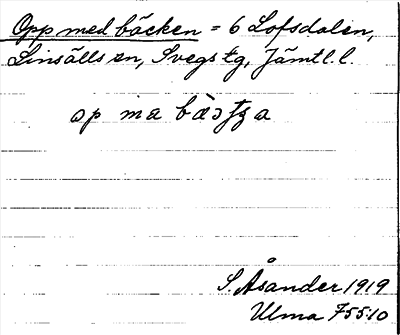 Opp med bäcken = 6 Lofsdalen,
Linsälls sn, Svegs tg, Jämtl. l.
op ma
S. Åsander 1919
Ulma 755:10